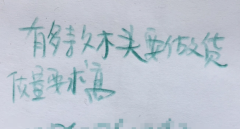 有多款木头要做货
质量要求高